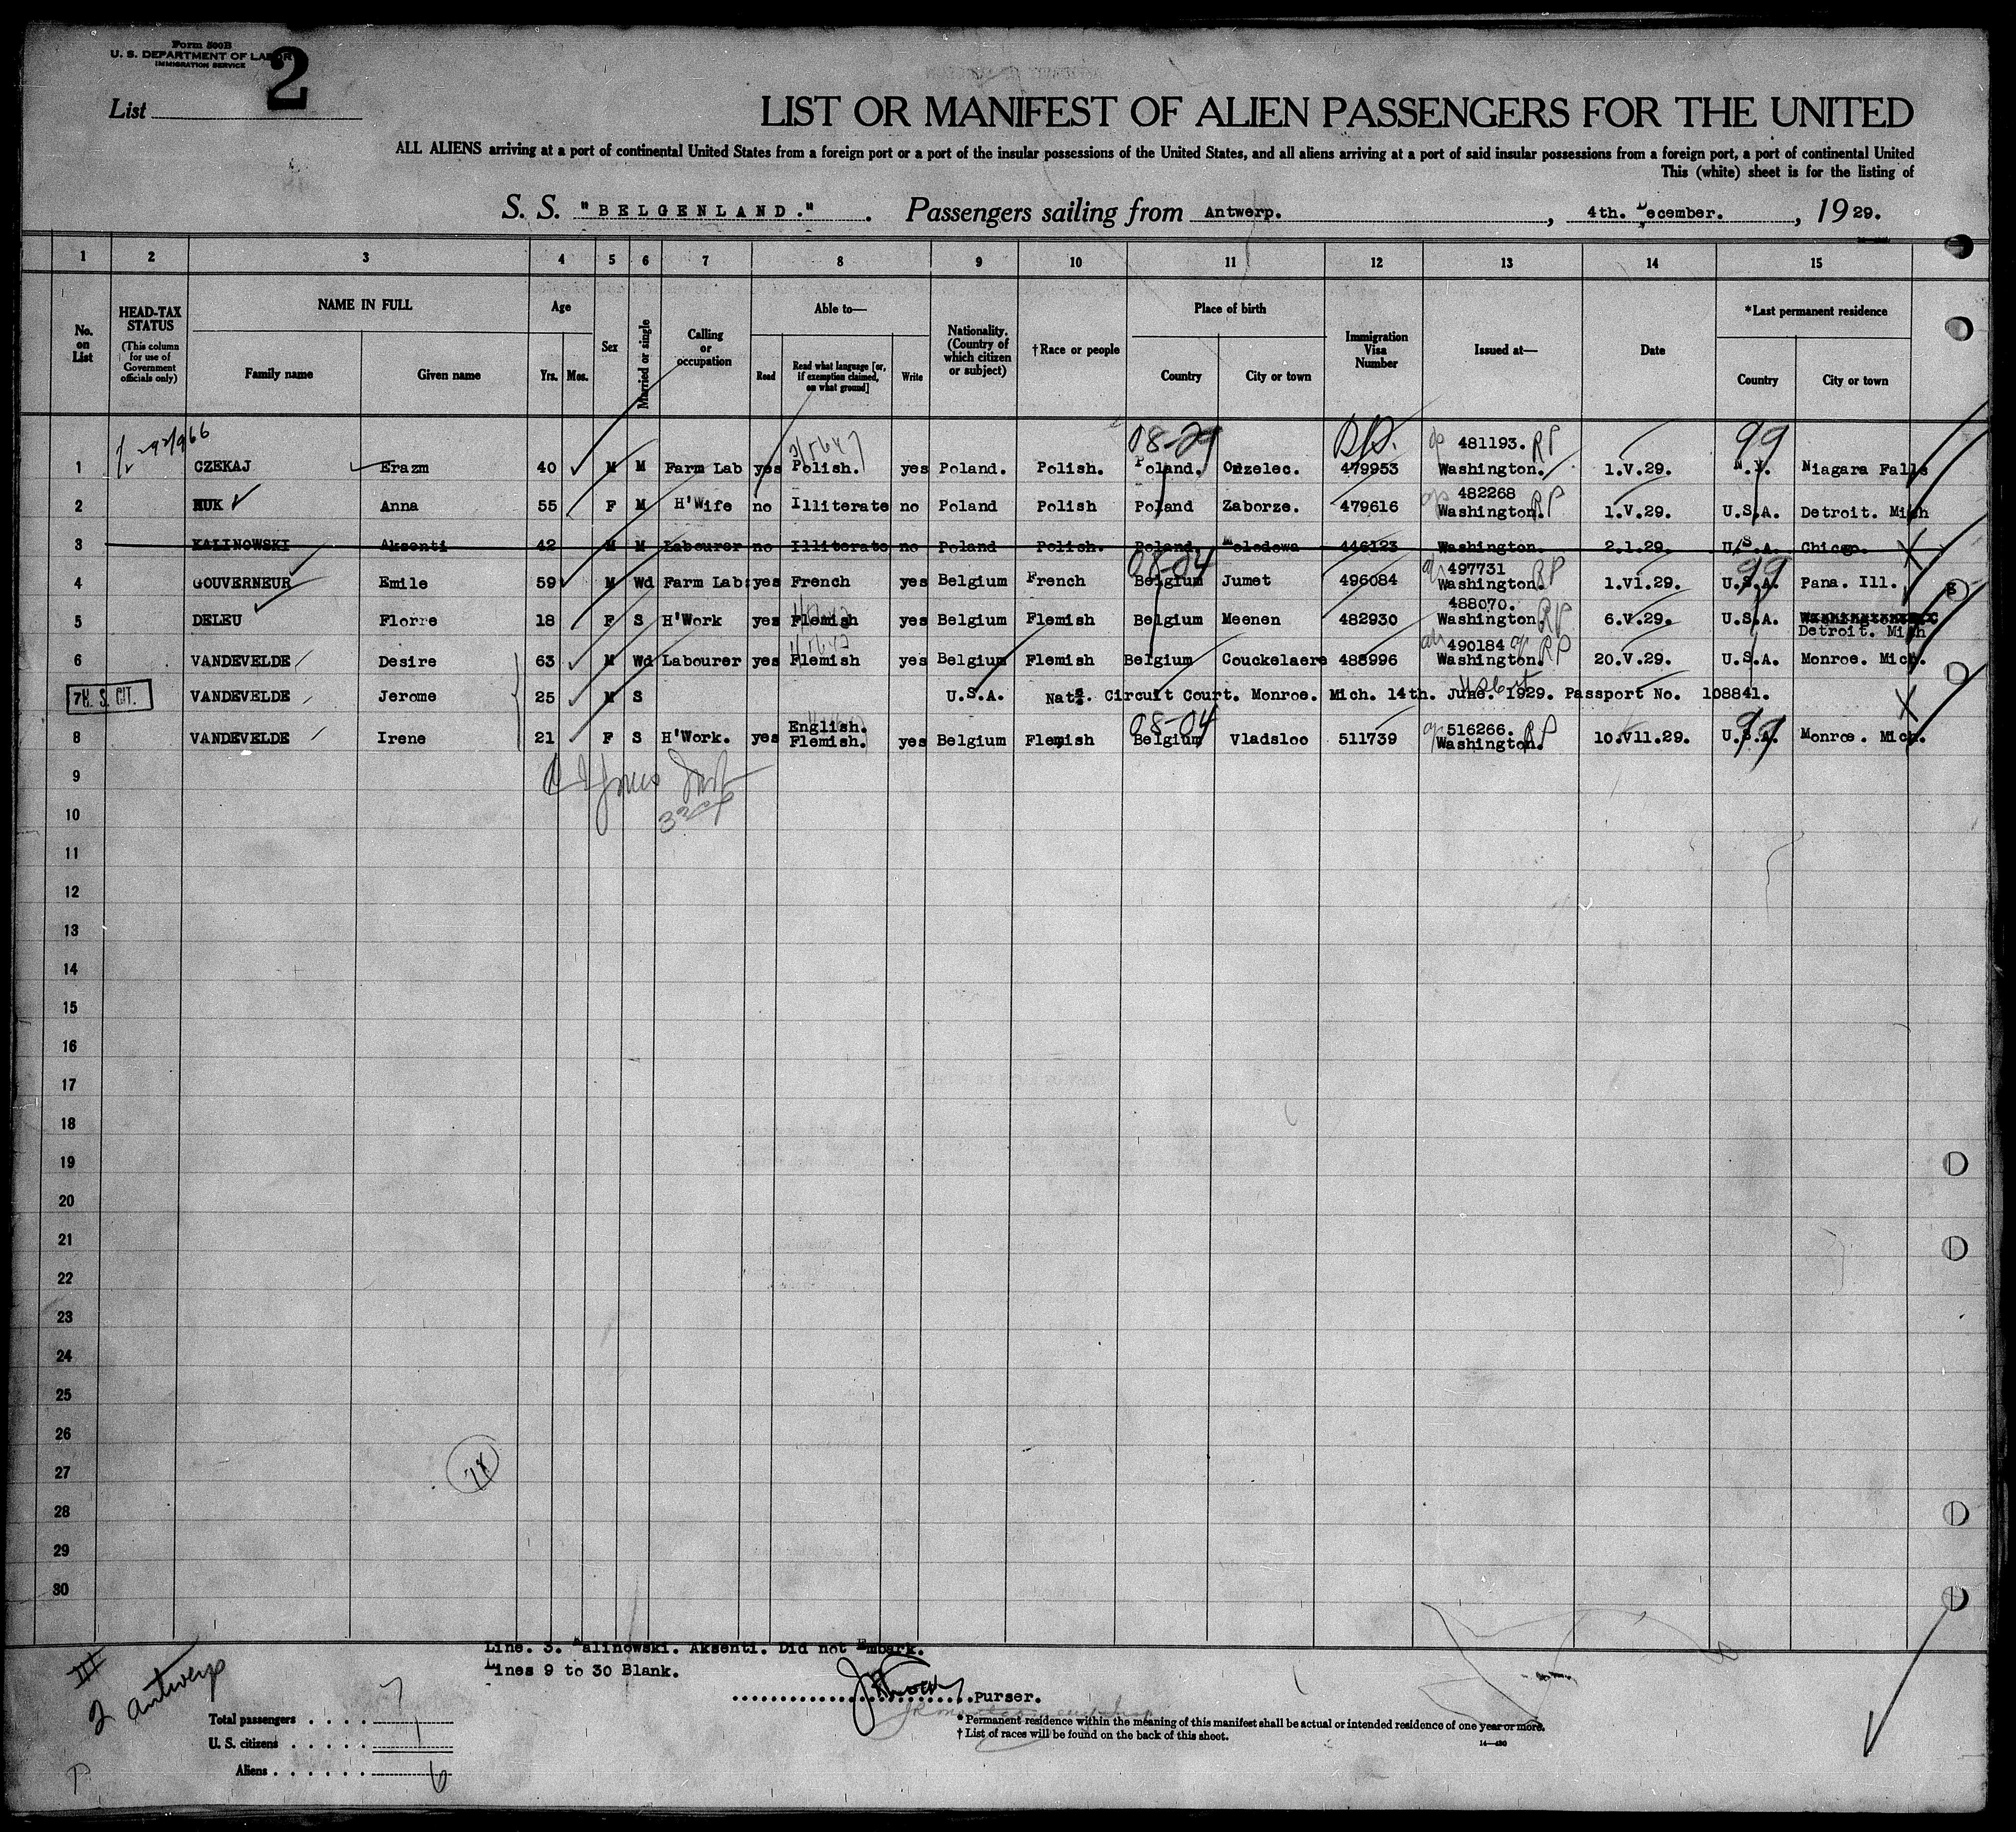 Form 500B
U. S. DEPARTMENT OF LABOR
IMMIGRATION SERVICE
2
List
LIST OR MANIFEST OF ALIEN PASSENGERS FOR THE UNITED
ALL ALIENS arriving at a port of continental United States from a foreign port or a port of the insular possessions of the United States, and all aliens arriving at a port of said insular possessions from a foreign port, a port of continental United
This (white) sheet is for the listing of
S. S. "BELGENLAND." . Passengers sailing from Antwerp. , 4th. December. , 1929.
1 2 3 4 5 6 7 8 9 10 11 12 13 14 15
No. on List
HEAD-TAX STATUS (This column for use of Government officials only)
NAME IN FULL
Family name Given name
Age
Yrs. Mos.
Sex
Married or single
Calling or occupation
Able to—
Read Read what language [or, if exemption claimed, on what ground] Write
Nationality. (Country of which citizen or subject)
†Race or people
Place of birth
Country City or town
Immigration Visa Number
Issued at—
Date
*Last permanent residence
Country City or town
08-29 99
481193. RP
1 CZEKAJ Erazm 40 M M Farm Lab yes Polish. yes Poland. Polish. Poland. 479953 Washington. 1.V.29. N.Y. Niagara Falls
482268 RP
2 HUK Anna 55 F M H'Wife no Illiterate no Poland Polish Poland Zaborze. 479616 Washington. 1.V.29. U.S.A. Detroit. Mich
3 KALINOWSKI Aksenti 42 M M Labourer no Illiterate no Poland Polish. Poland. Molodowa 446123 Washington. 2.1.29. U.S.A. Chicgo. X
08-04 497731 RP 99
4 GOUVERNEUR Emile 59 M Wd Farm Lab: yes French yes Belgium French Belgium Jumet 496084 Washington. 1.VI.29. U.S.A. Pana. Ill.
488070. RP
5 DELEU Florre 18 F S H'Work yes Flemish yes Belgium Flemish Belgium Meenen 482930 Washington. 6.V.29. U.S.A.
Detroit. Mich
490184 RP
6 VANDEVELDE Desire 63 M Wd Labourer yes Flemish yes Belgium Flemish Belgium Couckelaere 485996 Washington. 20.V.29. U.S.A. Monroe. Mich.
7 U. S. CIT. VANDEVELDE Jerome 25 M S U.S.A. Natz. Circuit Court. Monroe. Mich. 14th. June. 1929. Passport No. 108841. X
English. 08-04 516266. RP 99
8 VANDEVELDE Irene 21 F S H'Work. yes Flemish. yes Belgium Flemish Belgium Vladsloo 511739 Washington. 10.Vll.29. U.S.A. Monroe. Mich.
9
10
11
12
13
14
15
16
17
18
19
20
21
22
23
24
25
26
27
28
29
30
Line. 3. Kalinowski. Aksenti. Did not Embark.
Lines 9 to 30 Blank.
III
2 Antwerp
purser.
Total passengers . . . . 7
U. S. citizens . . . . . 1
Aliens . . . . . . 6
P
* Permanent residence within the meaning of this manifest shall be actual or intended residence of one year or more.
† List of races will be found on the back of this sheet.
14—430